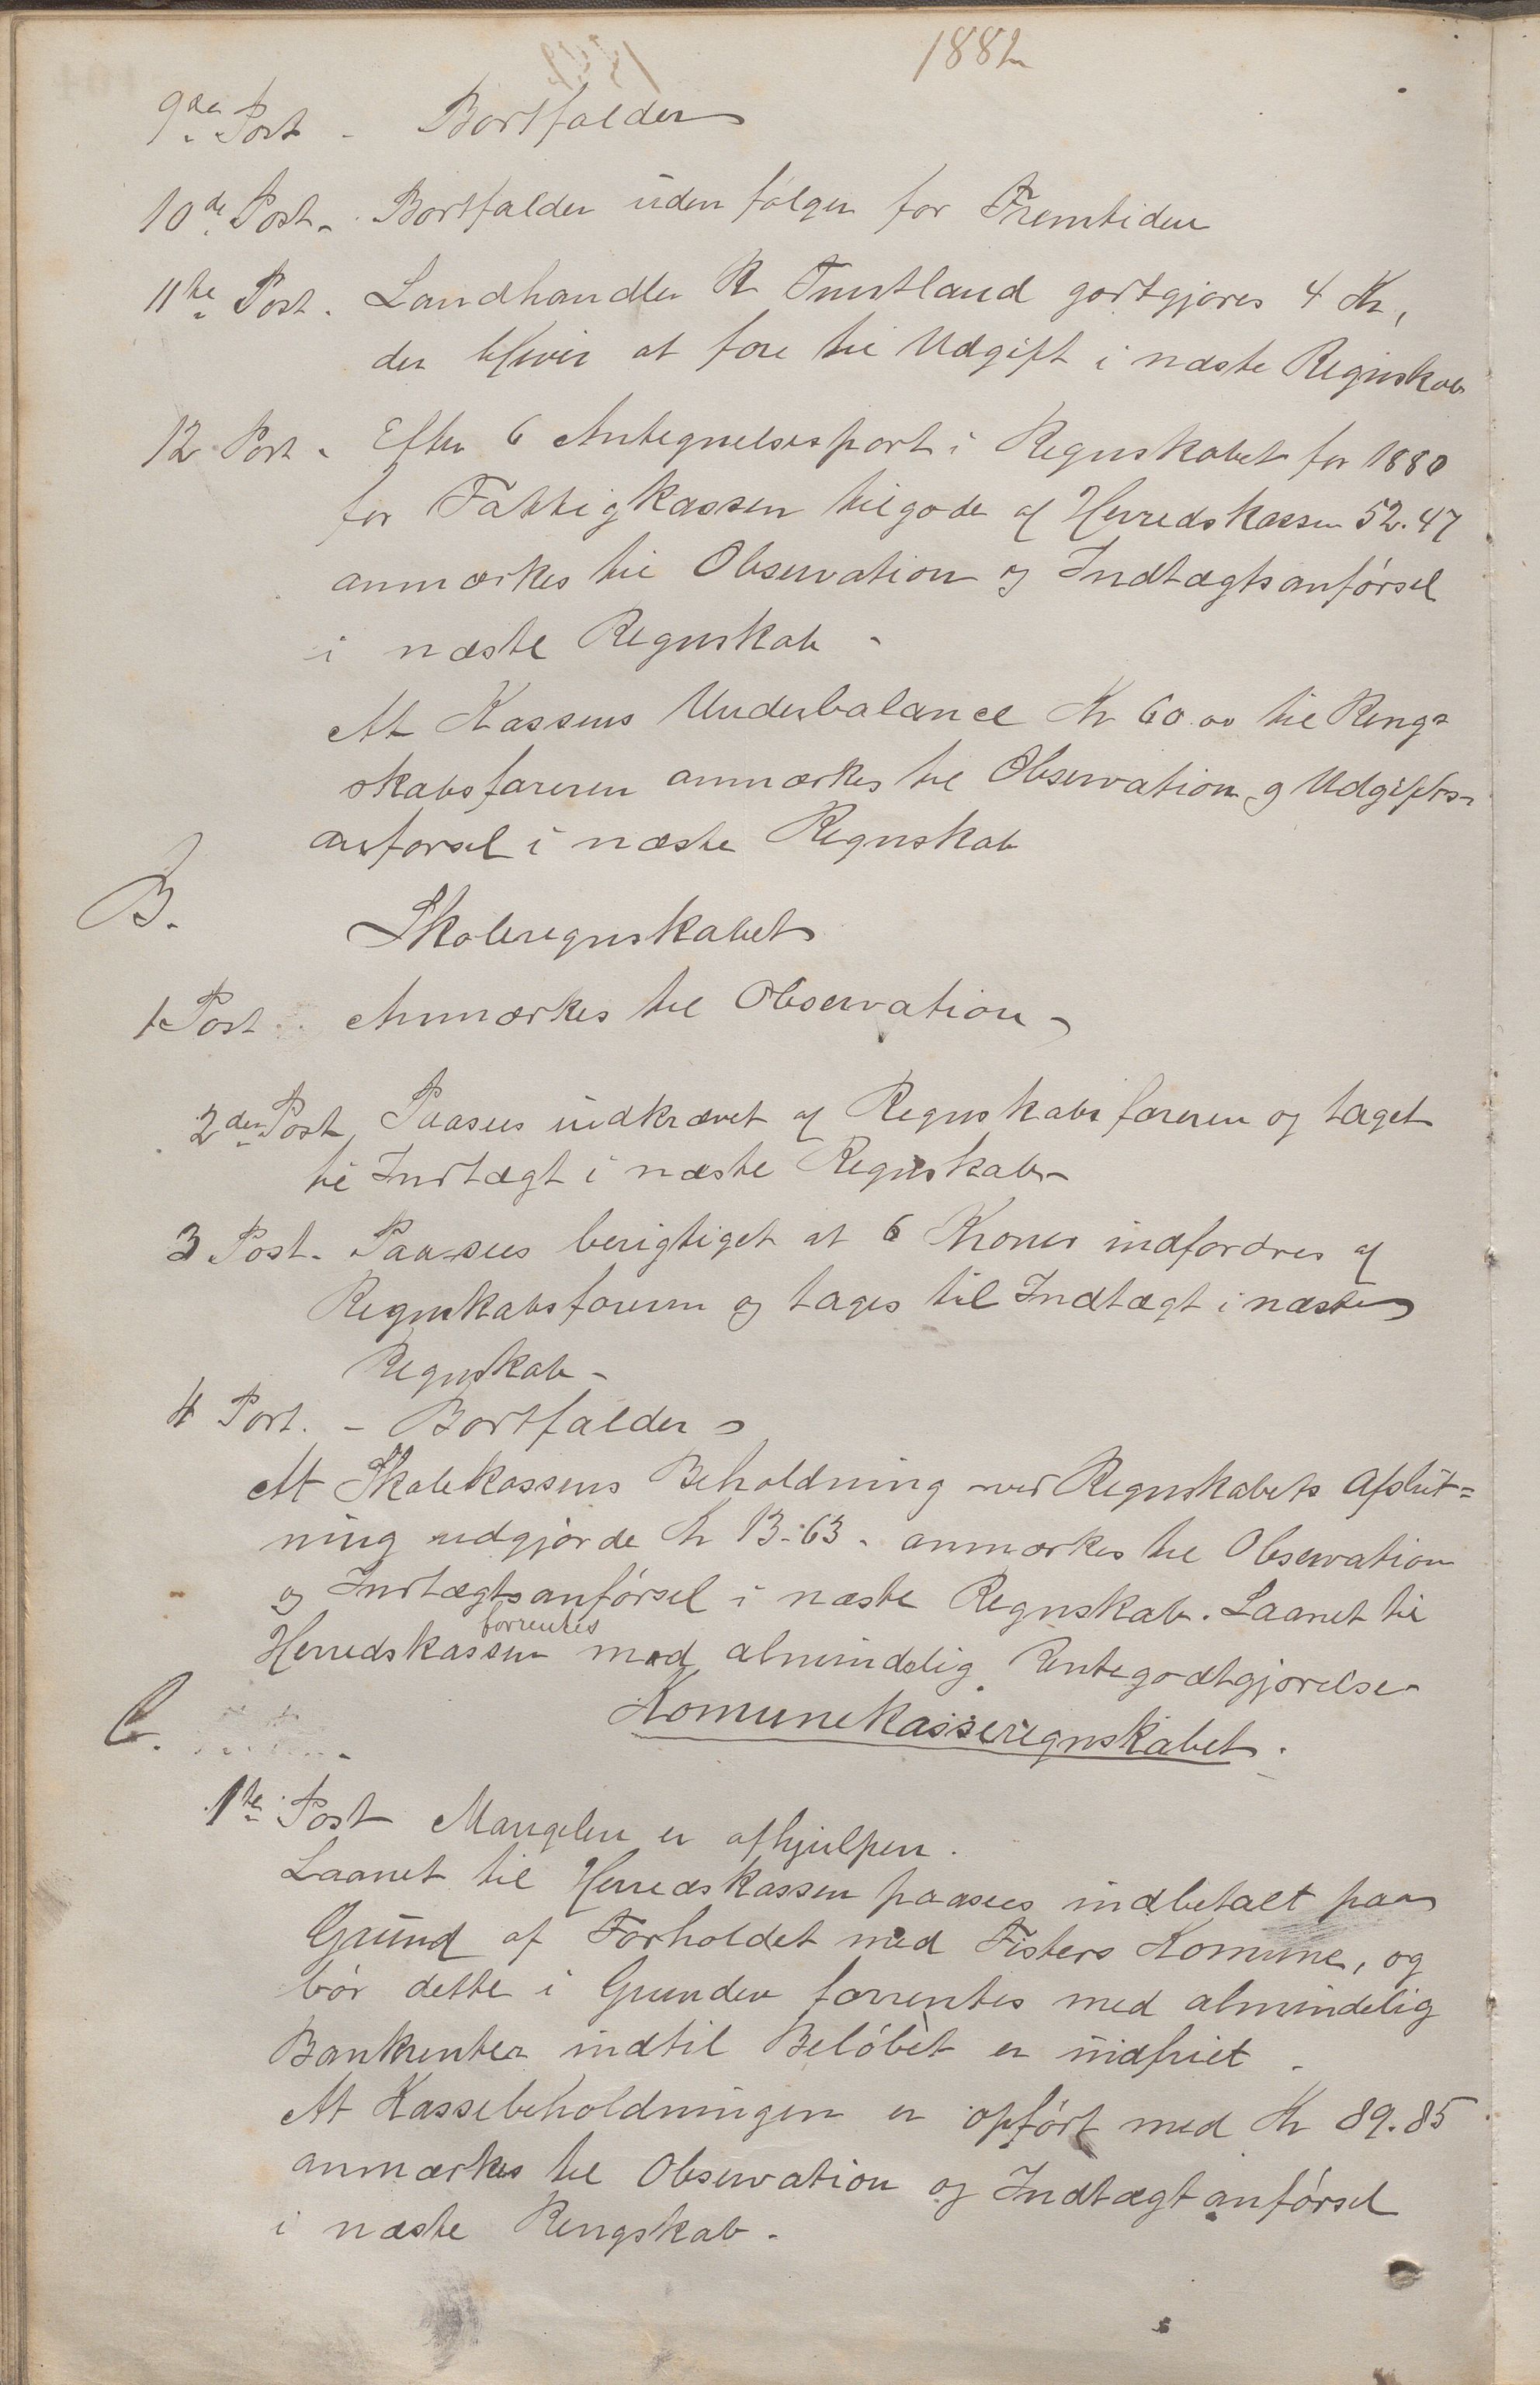 1882
9de Post - Bortfalder
10de Post - Bortfalder uden følger for Fremtiden
11te Post. Landhandler R Tuntland gortgjøres 4 Kr,
der bliver at føre til Udgift i næste Regnskab
12 Post - Efter 6 Antegnelsespost i Regnskabet for 1880
for Fattigkassen tilgode af Herredskassen 52.47
anmærkes til Observation og Indtægtsanførsel
i næste Regnskab -
At Kassens Underbalance Kr 60.00 til Rengs
skabsføreren anmærkes til Observation og Udgifts-
anførsel i næste Regnskab
B. Skoleregnskabet
1 Post. Anmærkes til Observation -
2den Post Paasees indkrævet af Regnskabsføreren og taget
til Indtægt i næste Regnskab -
3 Post. Paasees berigtiget at 6 Kroner indfordres af
Regnskabsføreren og tages til Indtægt i næste
Regnskab -
4 Post. - Bortfalder
At Skolekassens Beholdning ved Regnskabets Afslut=
ning udgjørde Kr 13.63. anmærkes til Observation
og Indtægtsanførsel i næste Regnskab. Laanet til
forrentes
Herredskassen med almindelig Rentegodtgjørelse -
C. Komunekasseregnskabet.
1te Post Mangelen er afhjulpen.
Laanet til Herredskassen paasees indbetalt paa
Grund af Forholdet med Fisters Komune, og
bør dette i Grunden forrentes med almindelig
Bankrenter indtil Beløbet er indfriet.
At Kassebeholdningen er opført med Kr 89.85
anmærkes til Observation og Indtægtanførsel
i næste Rengskab.